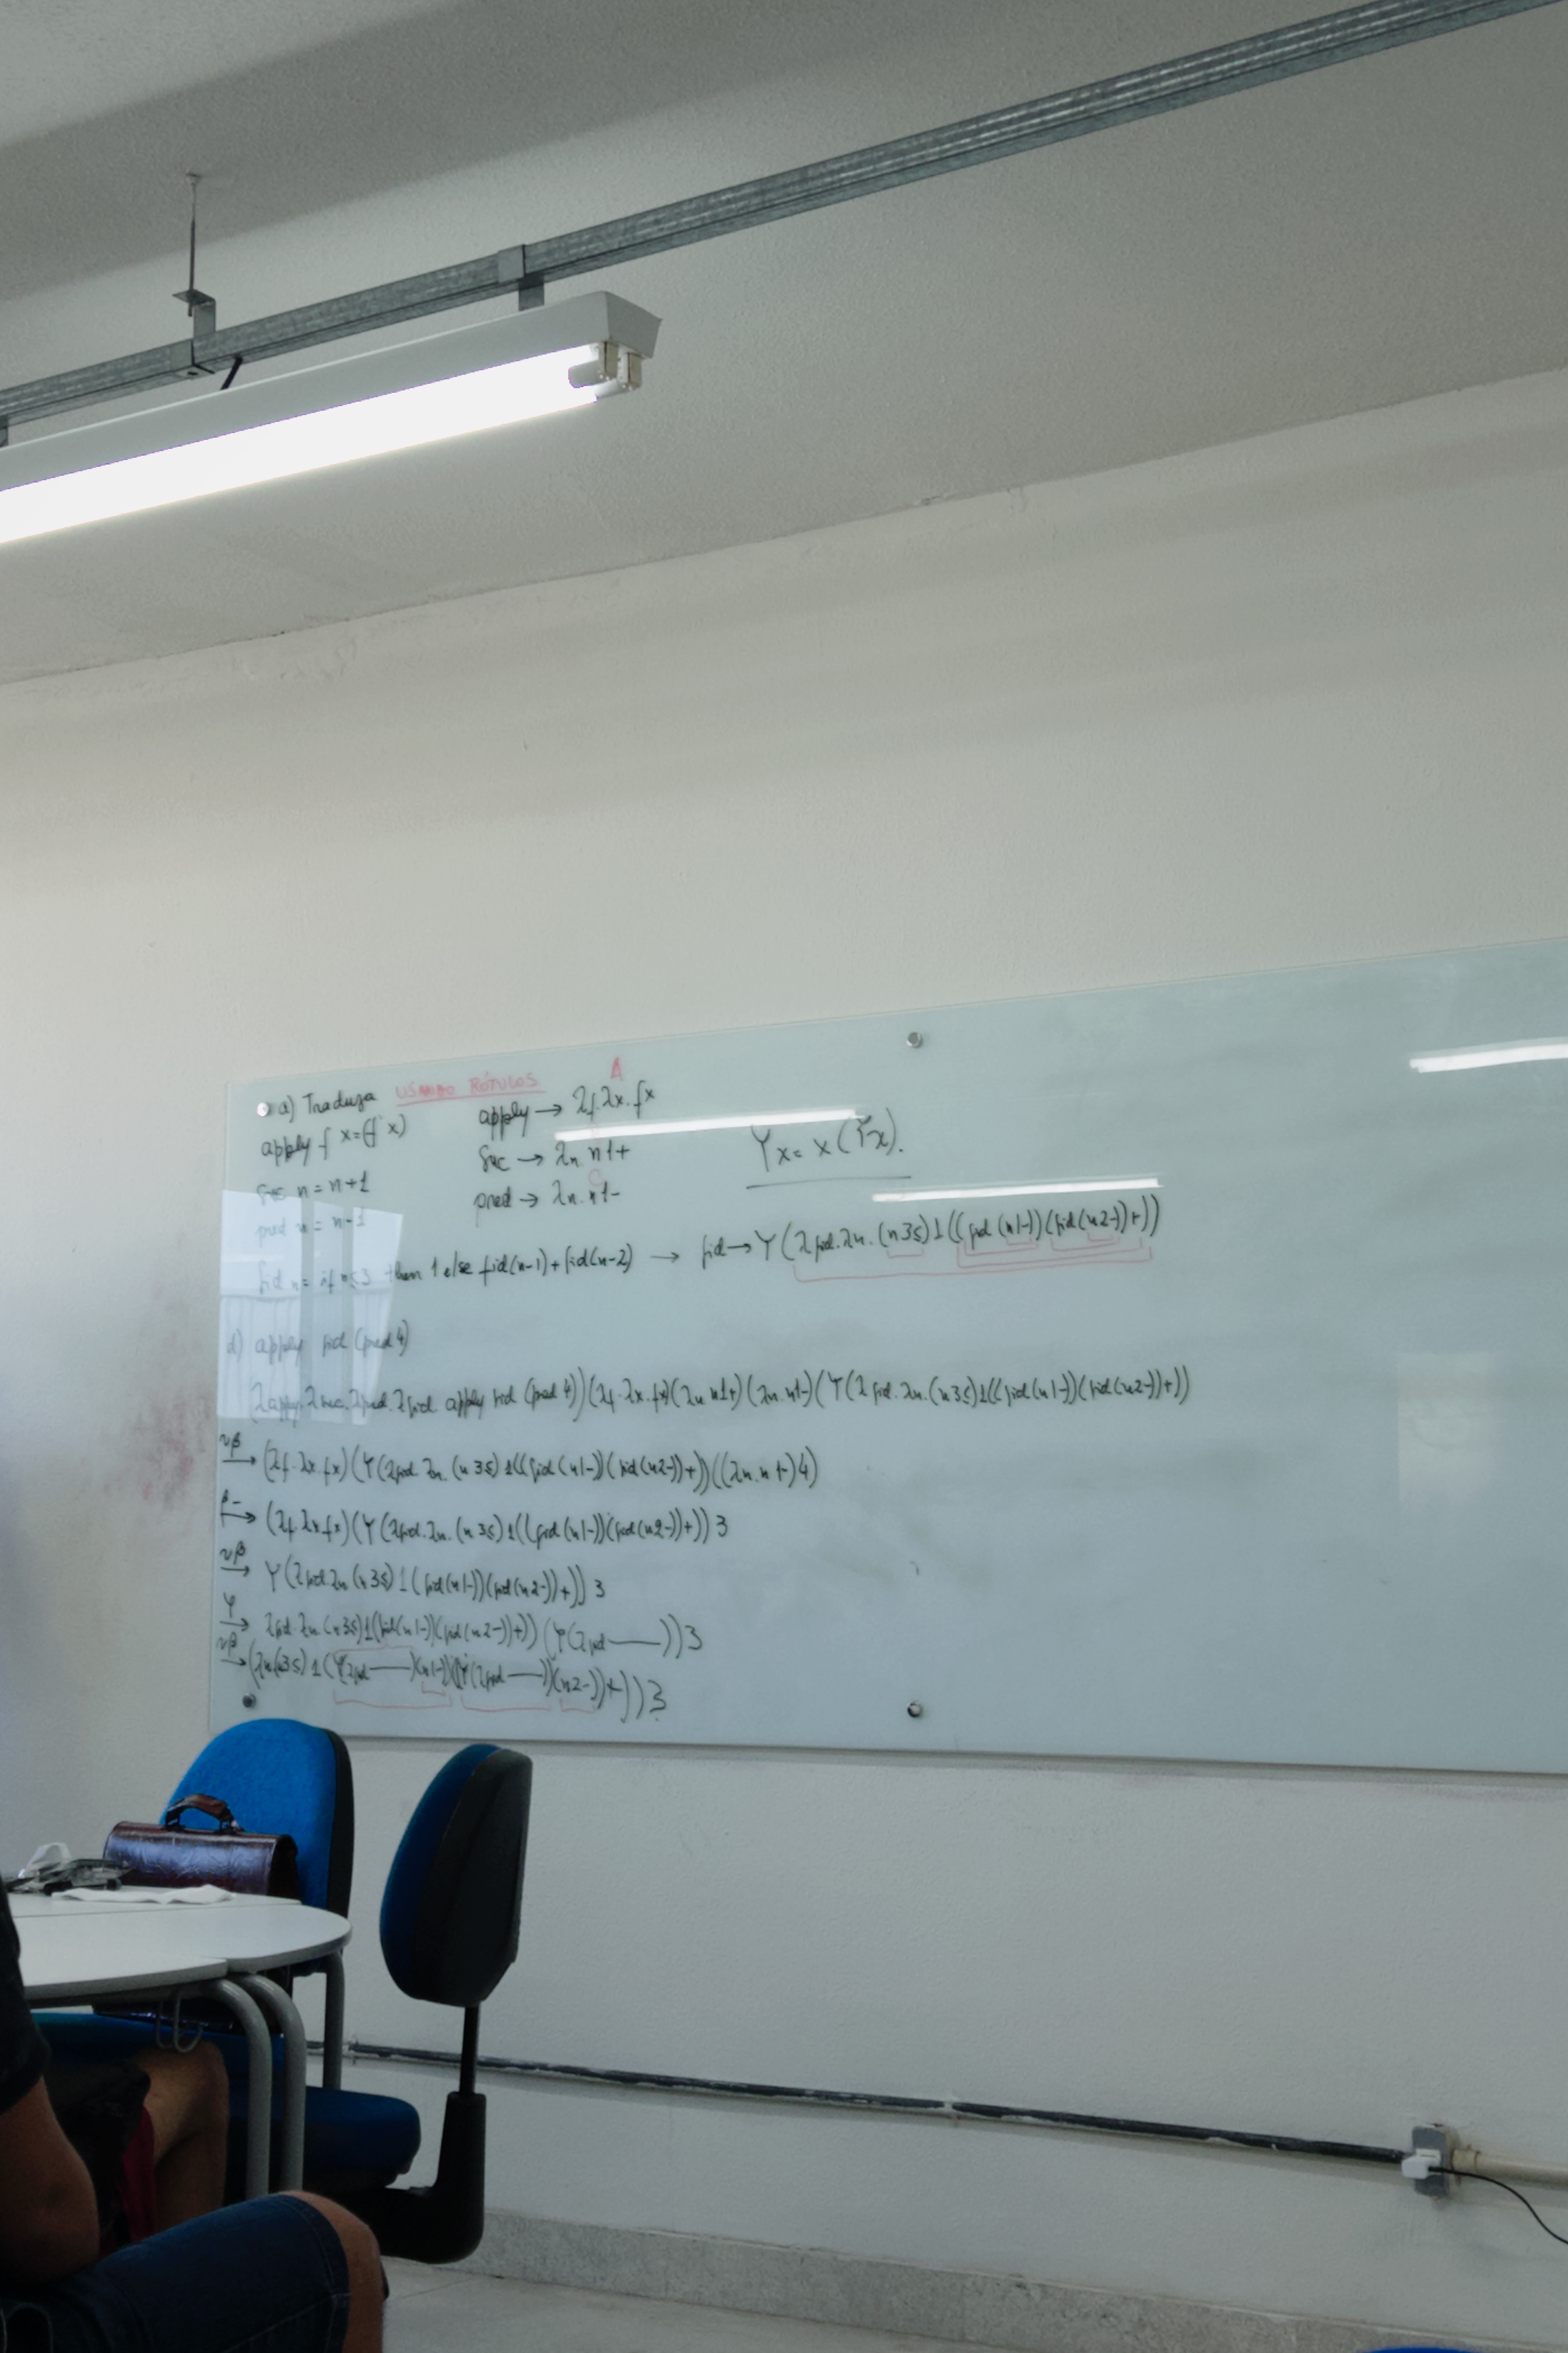 a) Traduza USANDO RÓTULOS
apply f x=(f x)
suc n = n+1
pred n = n-1
fid n = if n≤3 then 1 else fid(n-1)+fid(n-2) → fid→Y(λfid.λn.(n3≤)1((fid(n1-))(fid(n2-))+))
A
apply → λf.λx.fx
suc → λn.n1+
pred → λn.n1-
Yx = x(Yx).
d) apply fid (pred 4)
(λapply.λsuc.λpred.λfid.apply fid (pred 4))(λf.λx.fx)(λn.n1+)(λn.n1-)(Y(λfid.λn.(n3≤)1((fid(n1-))(fid(n2-))+))
→ (λf.λx.fx)(Y(λfid.λn.(n3≤)1((fid(n1-))(fid(n2-))+))((λn.n1-)4)
→ (λf.λx.fx)(Y(λfid.λn.(n3≤)1((fid(n1-))(fid(n2-))+)) 3
→ Y(λfid.λn(n3≤)1(fid(n1-))(fid(n2-))+)) 3
Y→ λfid.λn.(n3≤)1(fid(n1-))(fid(n2-))+)) (Y(λfid——))3
→ (λn(n3≤)1(Y(λfid——)(n1-))(Y(λfid——))(n2-))+))3